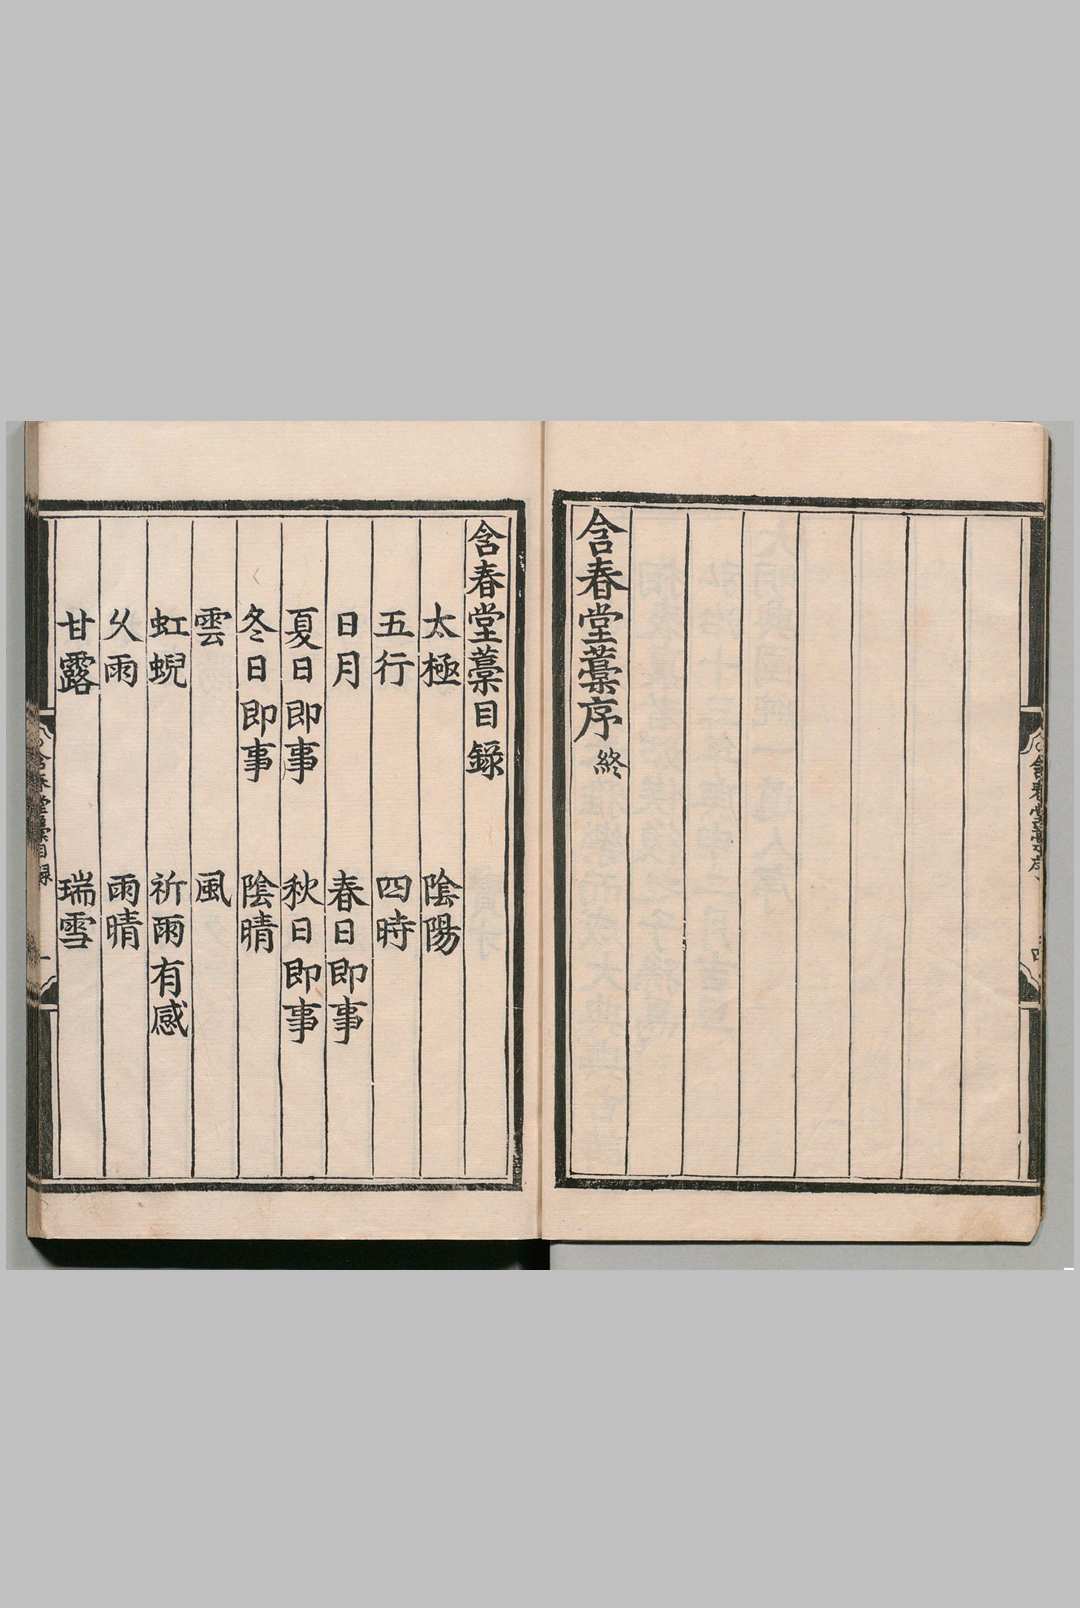 含春堂藁序 終
含春堂藁序 四
含春堂藁目錄
太極 陰陽
五行 四時
日月 春日即事
夏日即事 秋日即事
冬日即事 陰晴
雲 風
虹蜺 祈雨有感
乆雨 雨晴
甘露 瑞雪
含春堂藁目錄 一